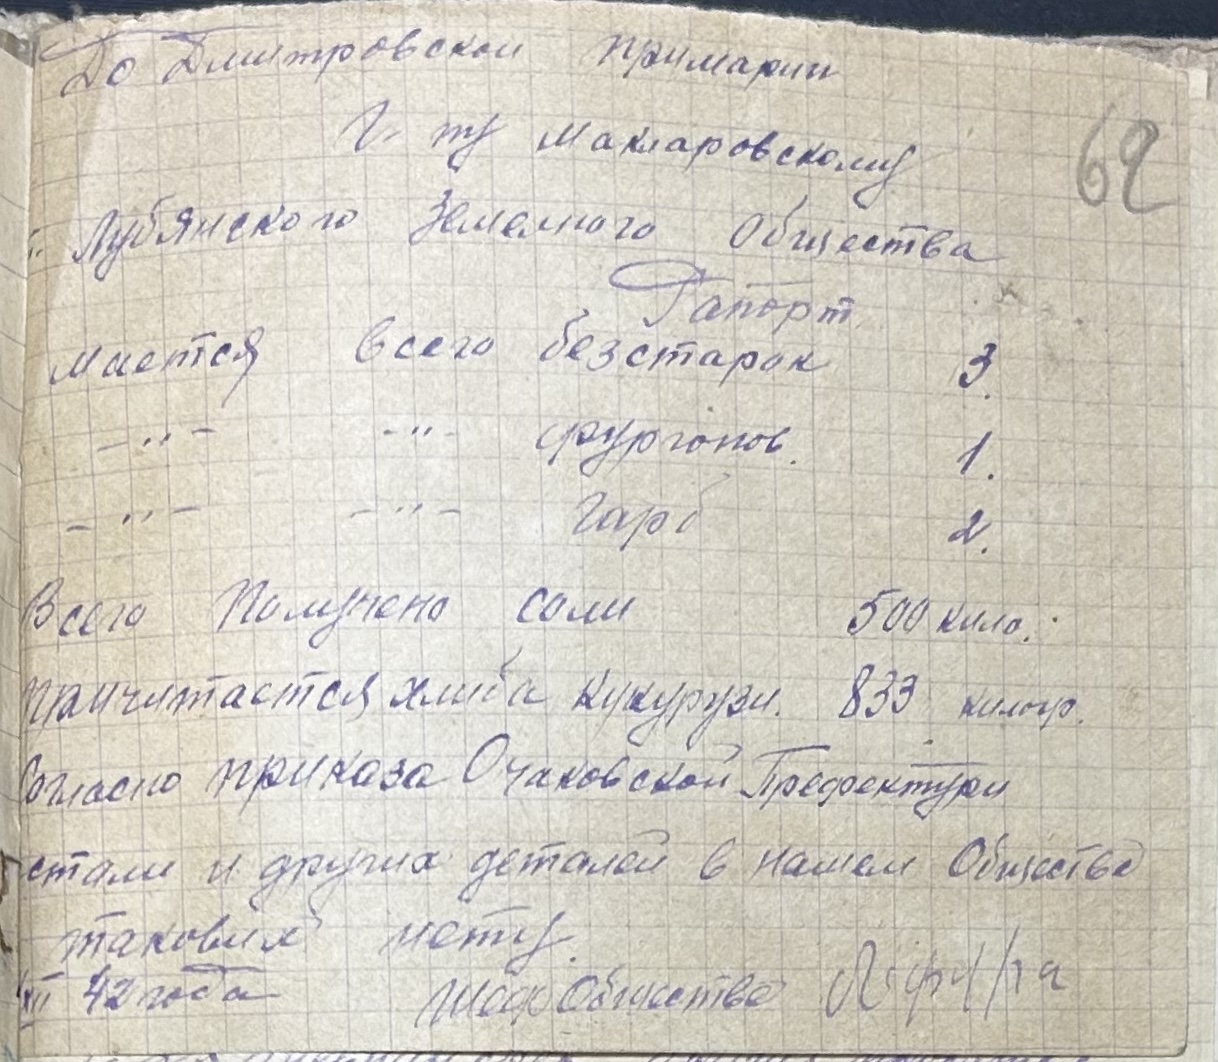 До Дмитровской примарии
Г. ту Макларовскому
62
Лубянского Земелного Общества
Рапорт
Мается Всего безстарок 3.
-"- -"- фургонов. 1.
-"- -"- Гарб 2.
Всего Получено соли 500 кило.
причитается хлиба кукурузи. 833 килогр.
Согласно приказа Очаковской Префектури
стали и других деталей в нашем Обществе
таковых нету.
XII 42 года Шеф Общества